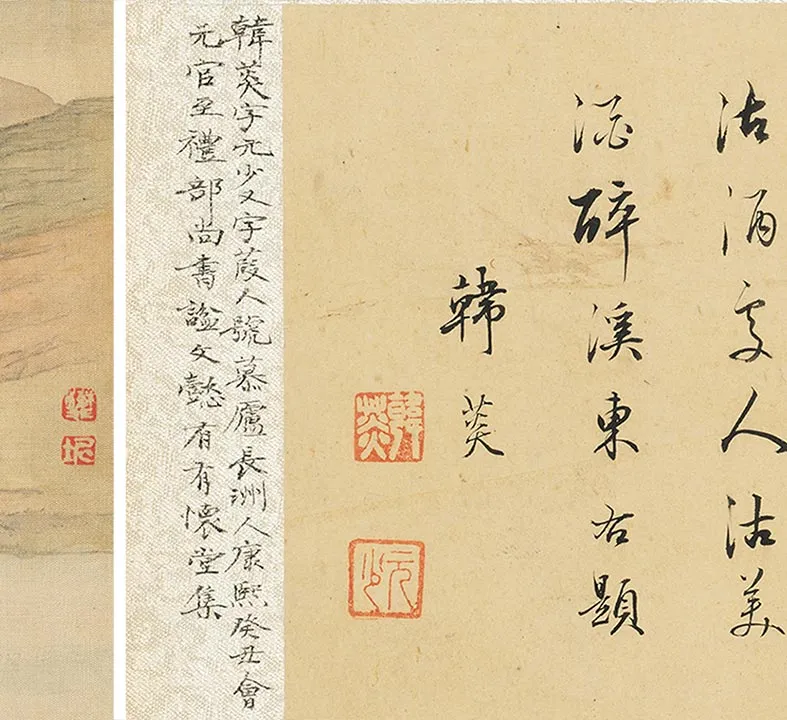 沽酒處人沽美
酒醉溪東右題
韓菼
韓菼
元少
韓菼字元少又字葭人號慕廬長洲人康熙癸丑會
元官至禮部尚書謚文懿有有懷堂集